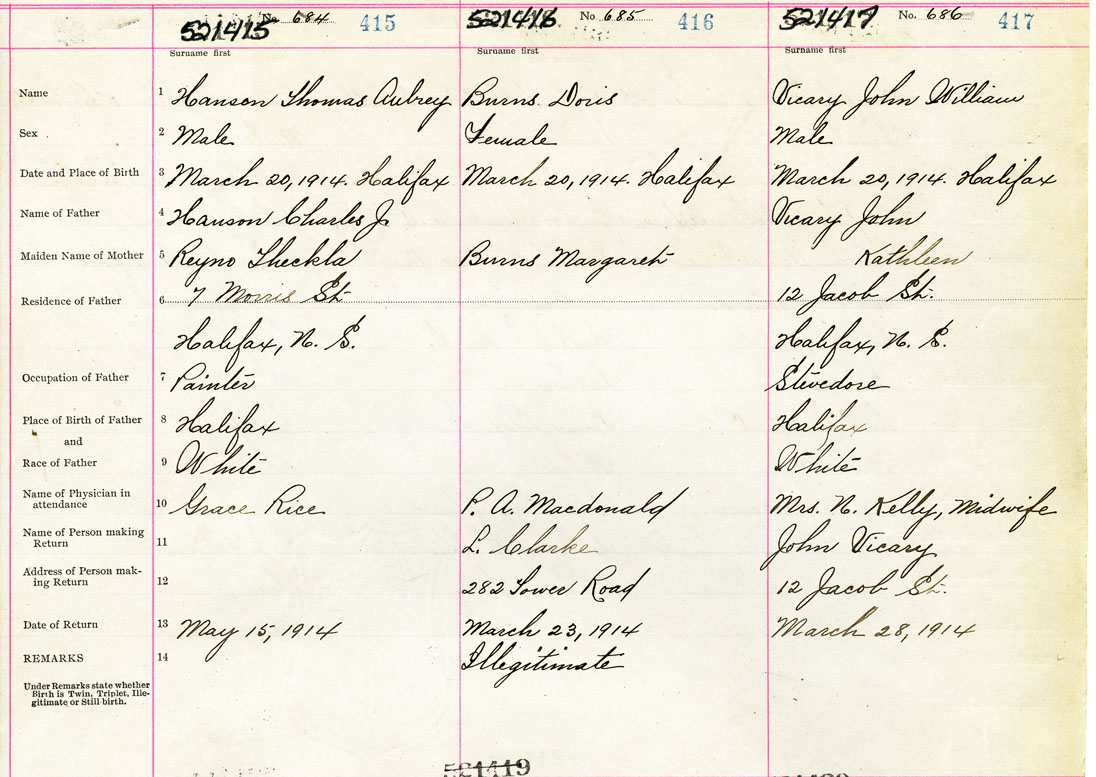 521415 No 684 415 521416 No 685 416 521417 No. 686 417
Surname first Surname first Surname first
Name 1 Hanson Thomas Aubrey Burns Doris Vicary John William
Sex . 2 Male Female Male
Date and Place of Birth 3 March 20, 1914. Halifax March 20, 1914. Halifax March 20, 1914. Halifax
Name of Father 4 Hanson Charles J Vicary John
Maiden Name of Mother 5 Reyno Theckla Burns Margaret Kathleen
Residence of Father 6 7 Morris St. 12 Jacob St.
Halifax, N. S. Halifax, N. S.
Occupation of Father 7 Painter Stevedore
Place of Birth of Father 8 Halifax Halifax
and
Race of Father 9 White White
Name of Physician in
attendance 10 Grace Rice P. A. Macdonald Mrs. N. Kelly, Midwife
Name of Person making
Return 11 L. Clarke John Vicary
Address of Person mak-
ing Return 12 282 Tower Road 12 Jacob St.
Date of Return 13 May 15, 1914 March 23, 1914 March 28, 1914
REMARKS 14 Illegitimate
Under Remarks state whether
Birth is Twin, Triplet, Ille-
gitimate or Still-birth.
521419